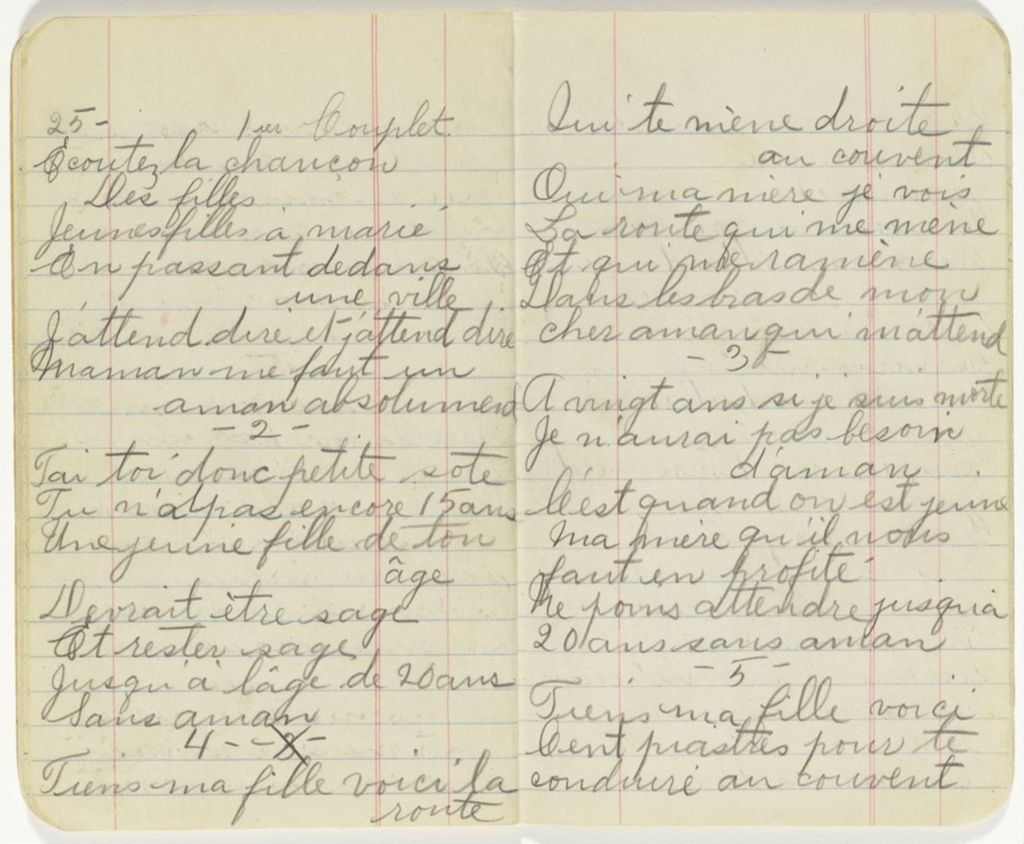 25- 1er Couplet.
Écoutez la chançon
Des filles
Jeunes filles à marié
En passant dedans
une ville
J'attend dire et j'attend dire
Maman me faut un
aman absolument
- 2 -
Tai toi donc petite sote
Tu n'a pas encore 15 ans
Une jeune fille de ton
âge
Devrait être sage
Et rester sage
Jusqu'à l'âge de 20 ans
Sans aman
4 -
Tiens ma fille voici la
route
Qui te mène droite
au couvent
Oui ma mère je vois
La route qui me mène
Et qui me ramène
Dans les bras de mon
cher aman qui m'attend
- 3 -
A vingt ans si je suis morte
Je n'aurai pas besoin
d'aman
C'est quand on est jeune
Ma mère qu'il nous
faut en profité
Ne poins attendre jusqu'à
20 ans sans aman
- 5 -
Tiens ma fille voici
Cent piastres pour te
conduire au couvent